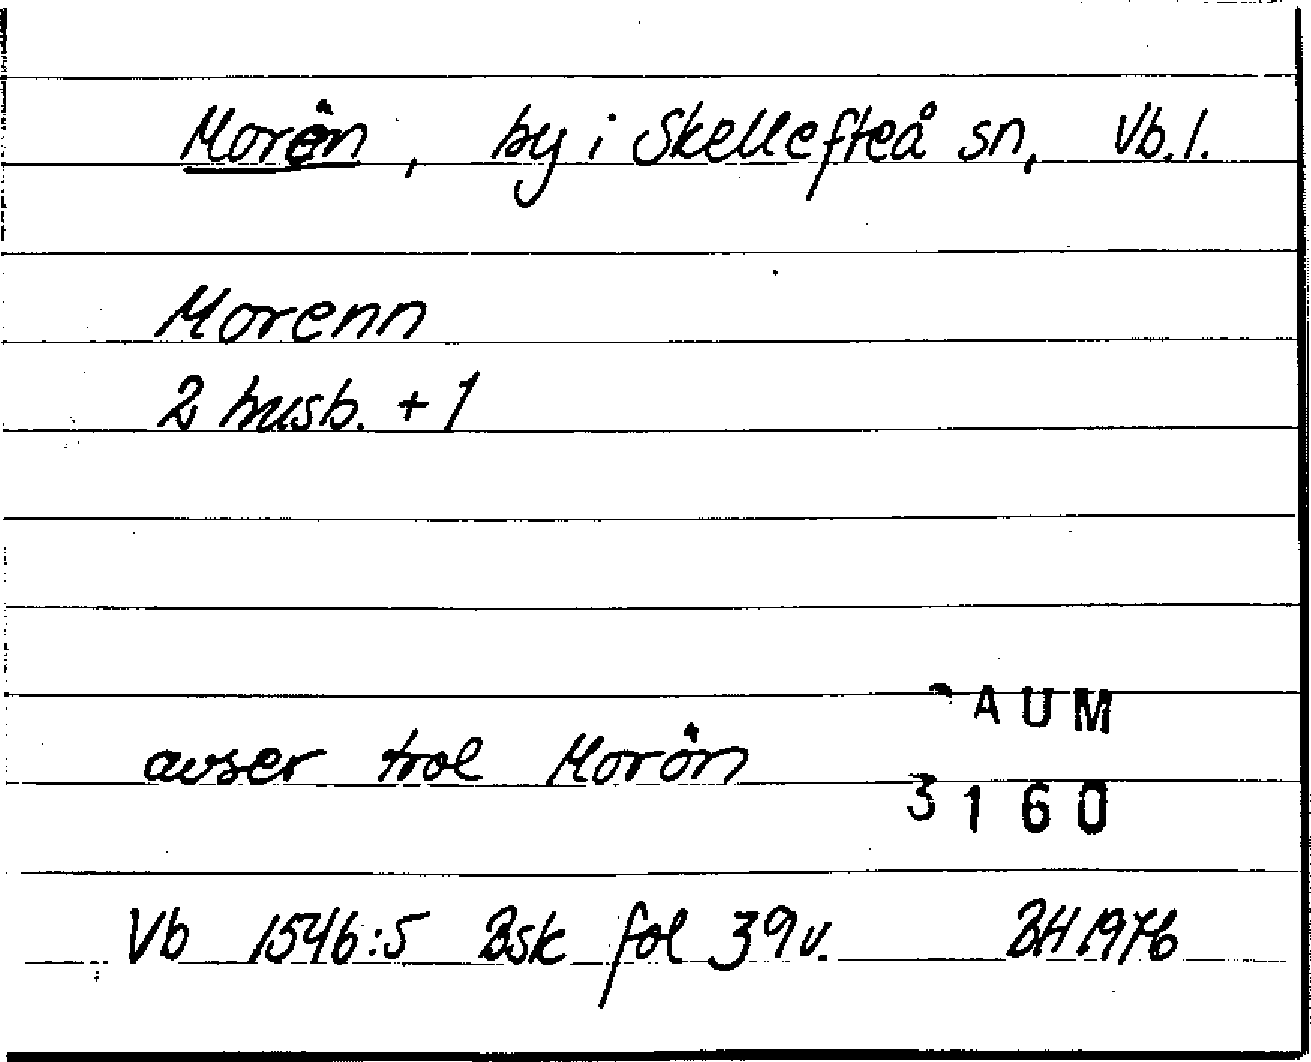 Morön, by i Skellefteå sn, Vb.l.
Morenn
2 husb. + 1
AUM
avser trol Morön
3160
Vb 1546:5 Bsk fol 39v. BH 1976